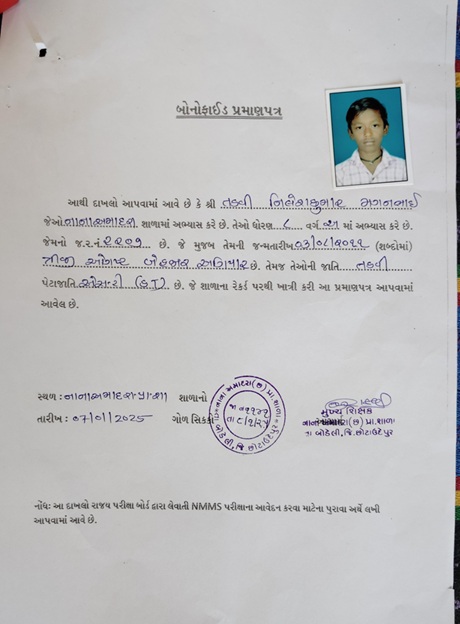 બોનોફાઈડ પ્રમાણપત્ર
આથી દાખલો આપવામાં આવે છે કે શ્રી તડવી નિલેશકુમાર મગનભાઈ
જેઓ નાનાઅમાદરા શાળામાં અભ્યાસ કરે છે. તેઓ ધોરણ ૮ વર્ગ અ માં અભ્યાસ કરે છે.
જેમનો જ.ર.નં ૨૨૭૧ છે. જે મુજબ તેમની જન્મતારીખ ૦૩/૦૮/૨૦૧૧ (શબ્દોમાં)
ત્રીજી ઓગષ્ટ બેહજાર અગિયાર છે. તેમજ તેઓની જાતિ તડવી
પેટાજાતિ એસ.ટી (S.T) છે. જે શાળાના રેકર્ડ પરથી ખાત્રી કરી આ પ્રમાણપત્ર આપવામાં
આવેલ છે.
સ્થળ : નાનાઅમાદરા પ્રા.શા શાળાનો
તારીખ : 07/01/2025 ગોળ સિક્કો
મુખ્ય શિક્ષક
નાના અમાદરા(છ) પ્રા.શાળા
તા બોડેલી, જિ.છોટાઉદેપુર
નોંધ: આ દાખલો રાજય પરીક્ષા બોર્ડ દ્વારા લેવાતી NMMS પરીક્ષાના આવેદન કરવા માટેના પુરાવા અર્થે લખી
આપવામાં આવે છે.